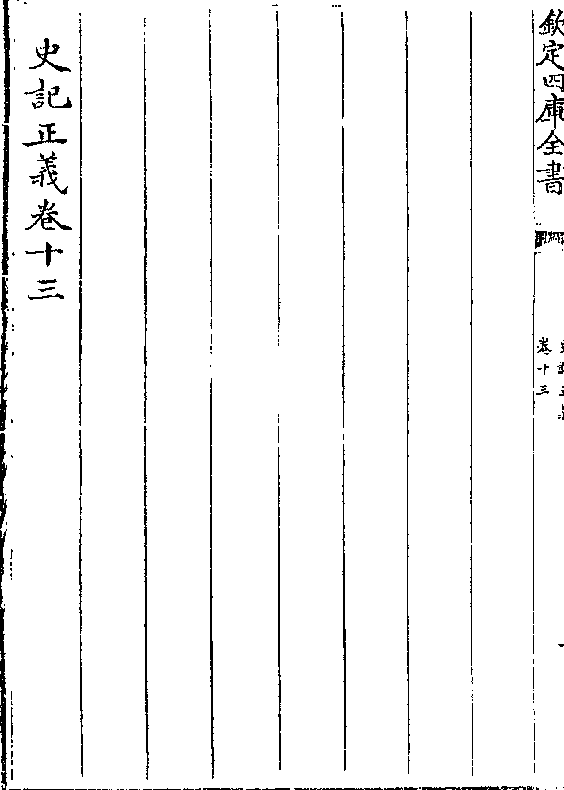 欽定四庫全書
史記正義
卷十三
史記正義卷十三